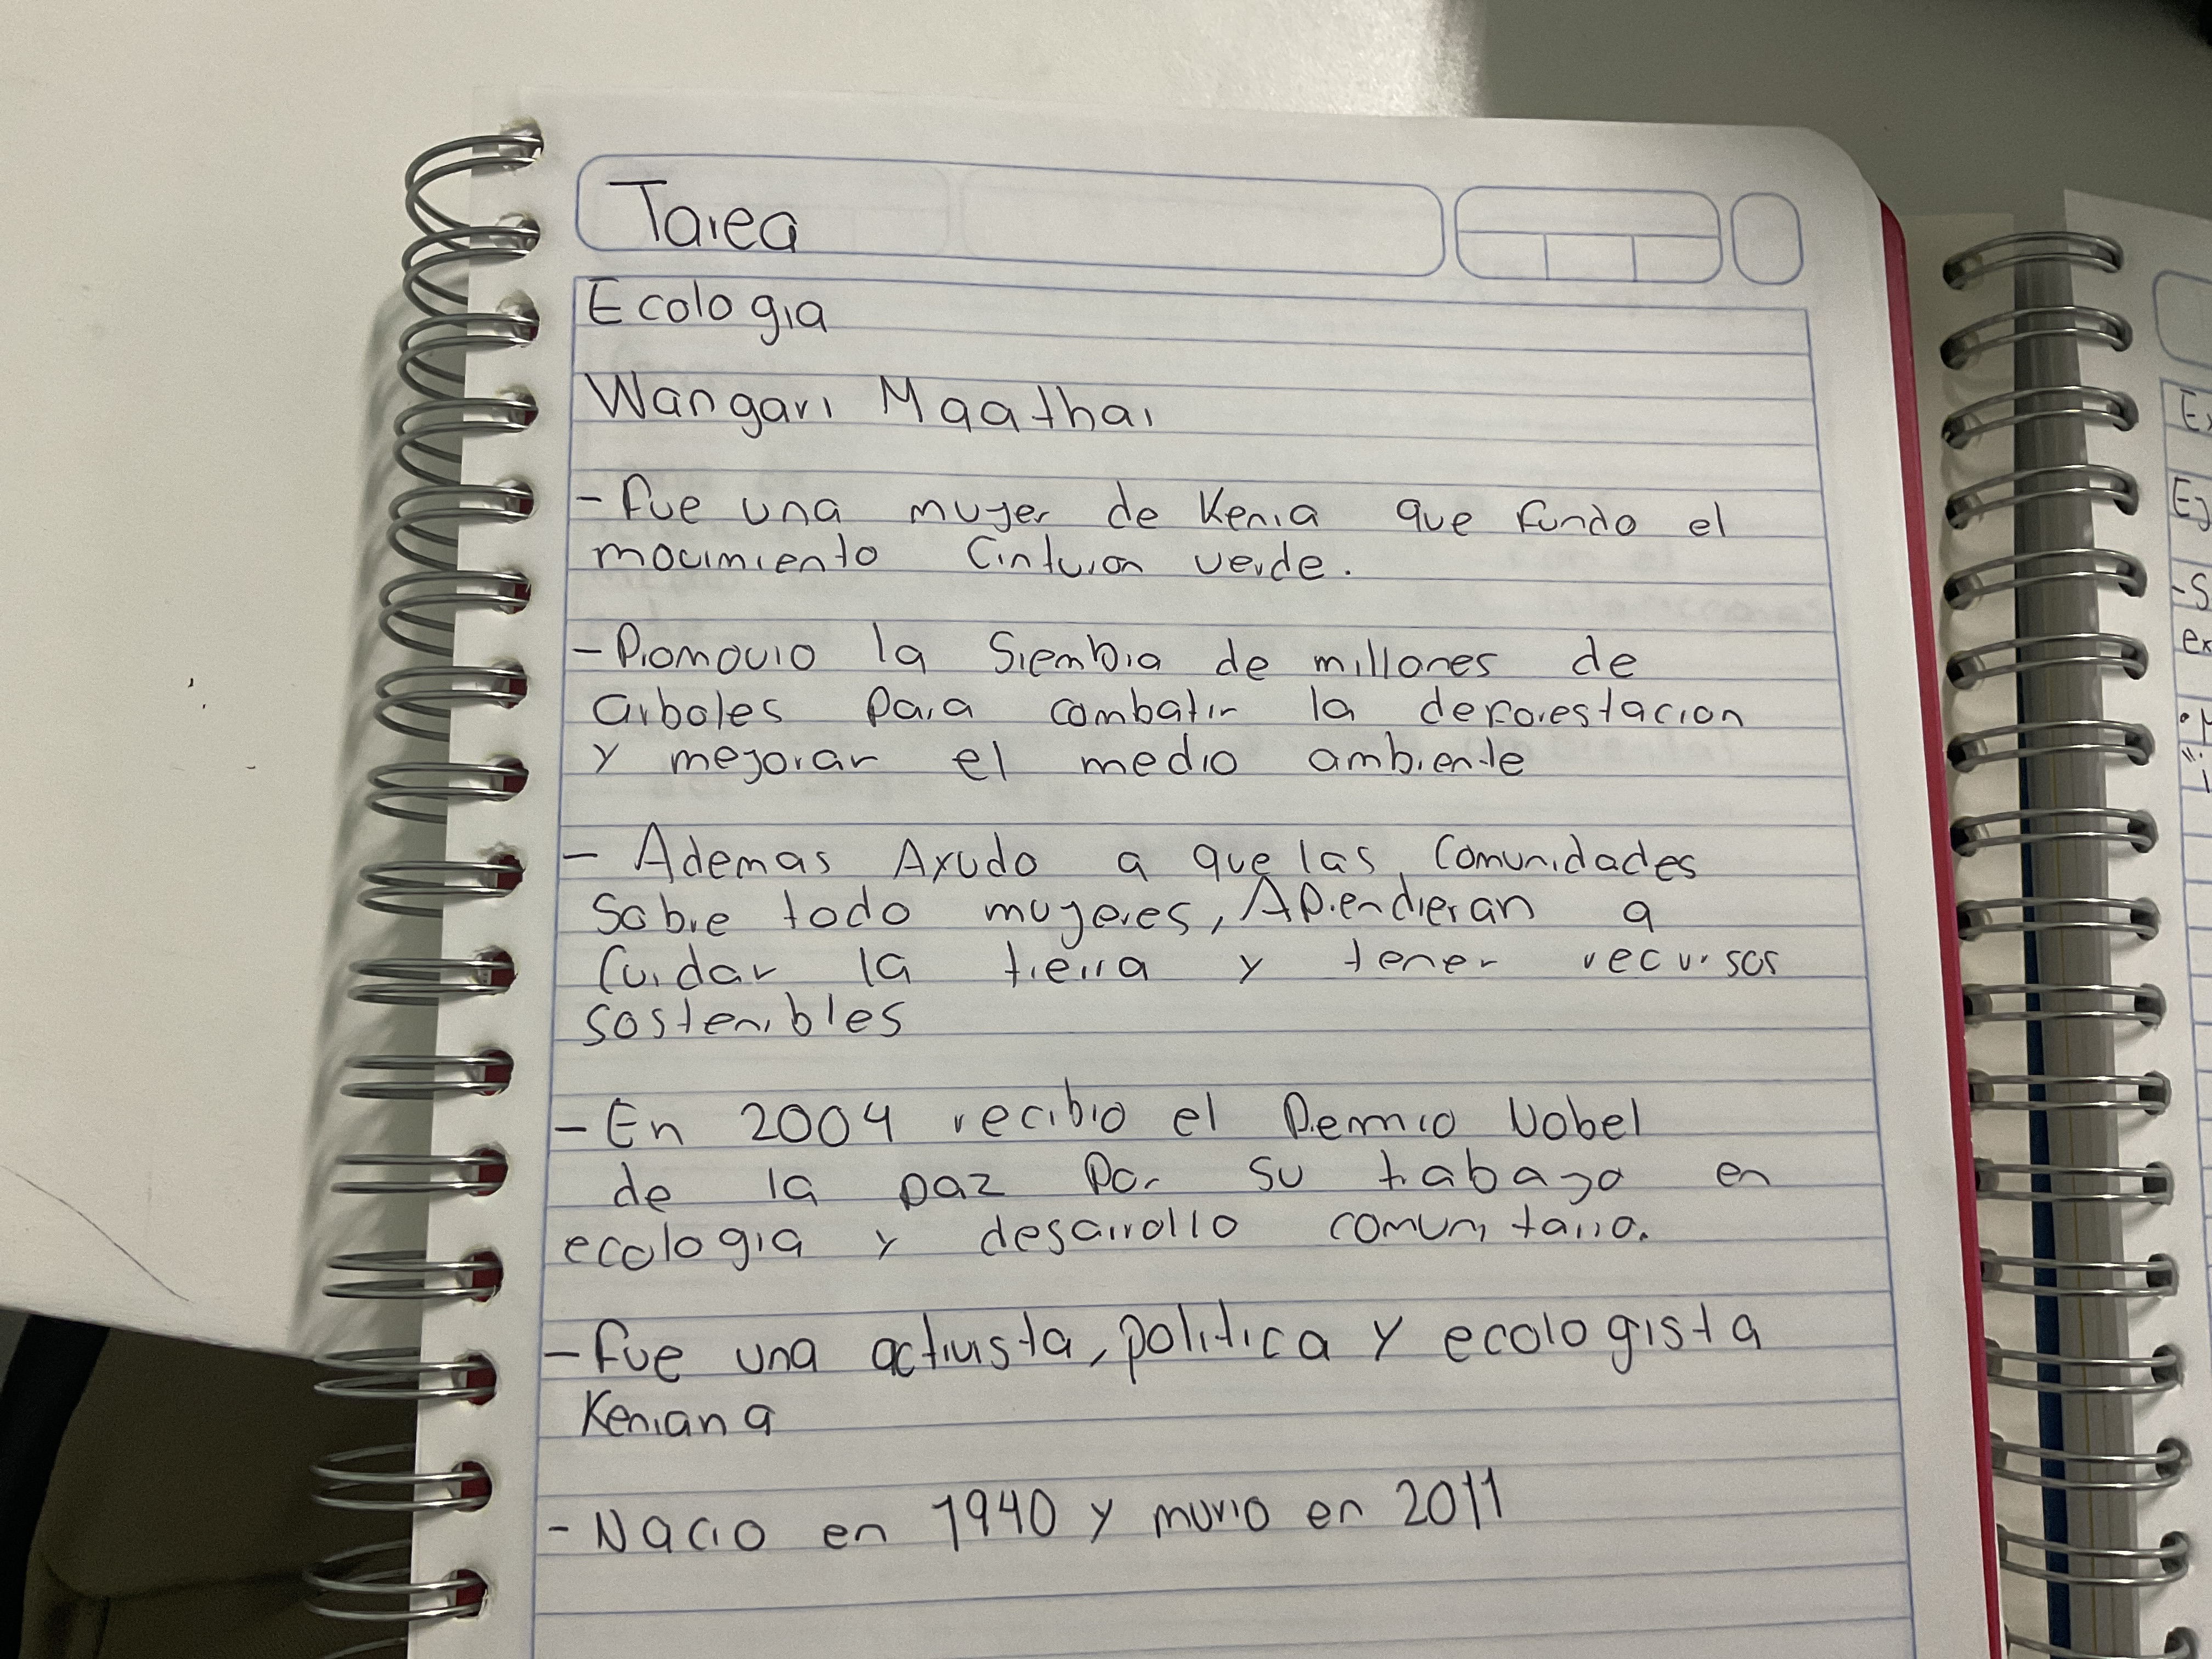 Tarea
Ecologia
Wangari Maathai
- fue una mujer de Kenia que fundo el
movimiento Cinturon verde.
- Promovio la Siembra de millones de
arboles para combatir la deforestacion
y mejorar el medio ambiente
- Ademas Ayudo a que las comunidades
sobre todo mujeres, Aprendieran a
cuidar la tierra y tener recursos
sostenibles
- En 2004 recibio el Premio Nobel
de la paz por su trabajo en
ecologia y desarrollo comunitario.
- fue una activista, politica y ecologista
Keniana
- Nacio en 1940 y murio en 2011
Ej
-S
ex